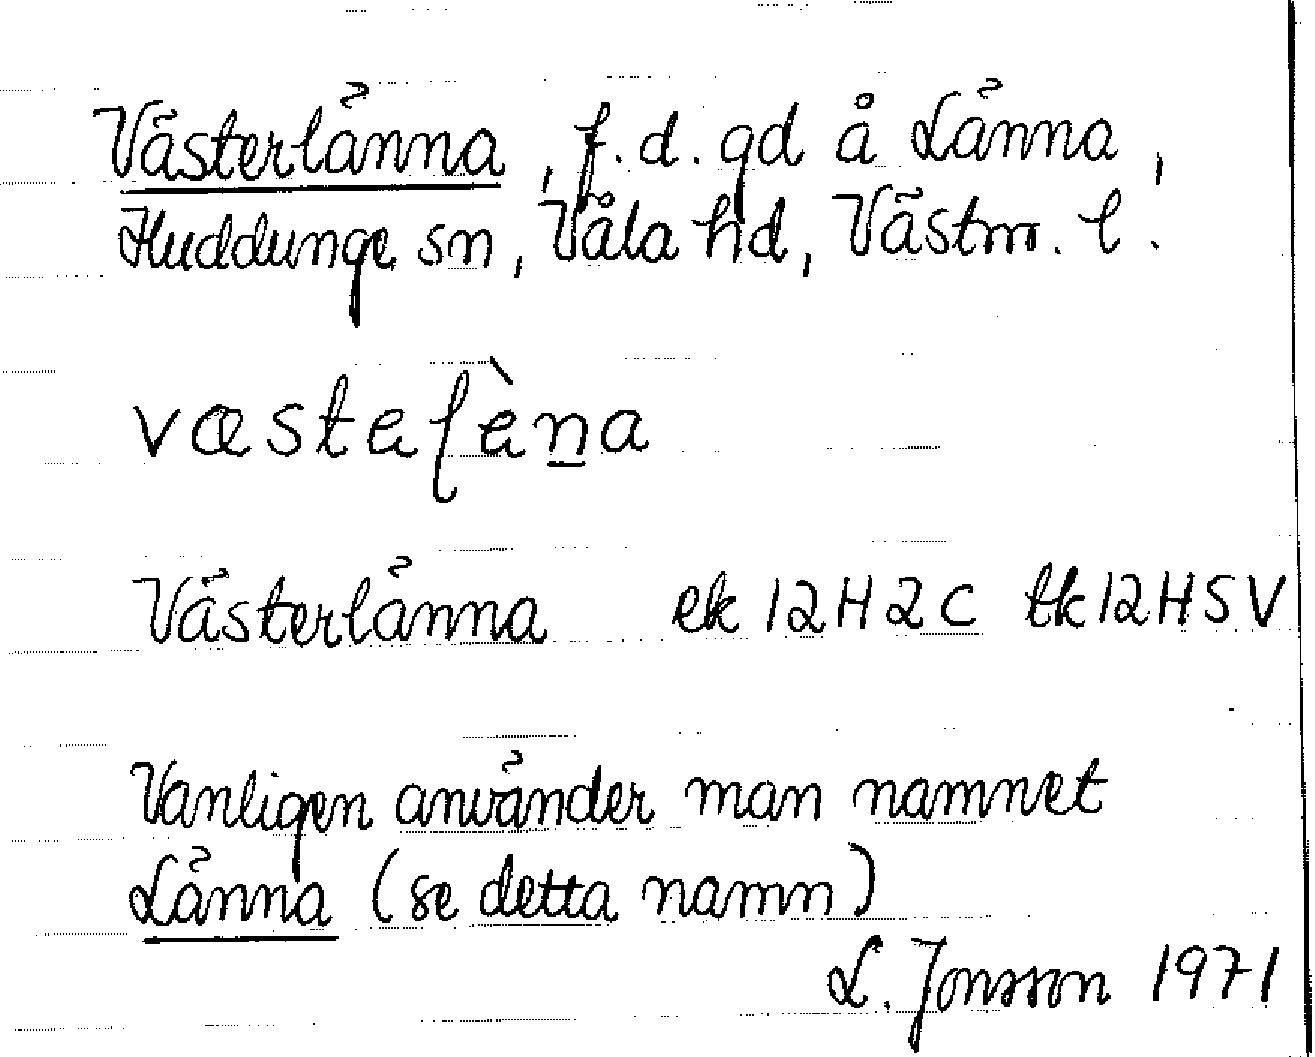 Västerlänna, f.d. gd å Länna,
Huddunge sn, Våla hd, Västm. l.
væsteɭèn̲a
Västerlänna ek 12H2C tk12HSV
Vanligen använder man namnet
Länna (se detta namn)
L. Jonsson 1971